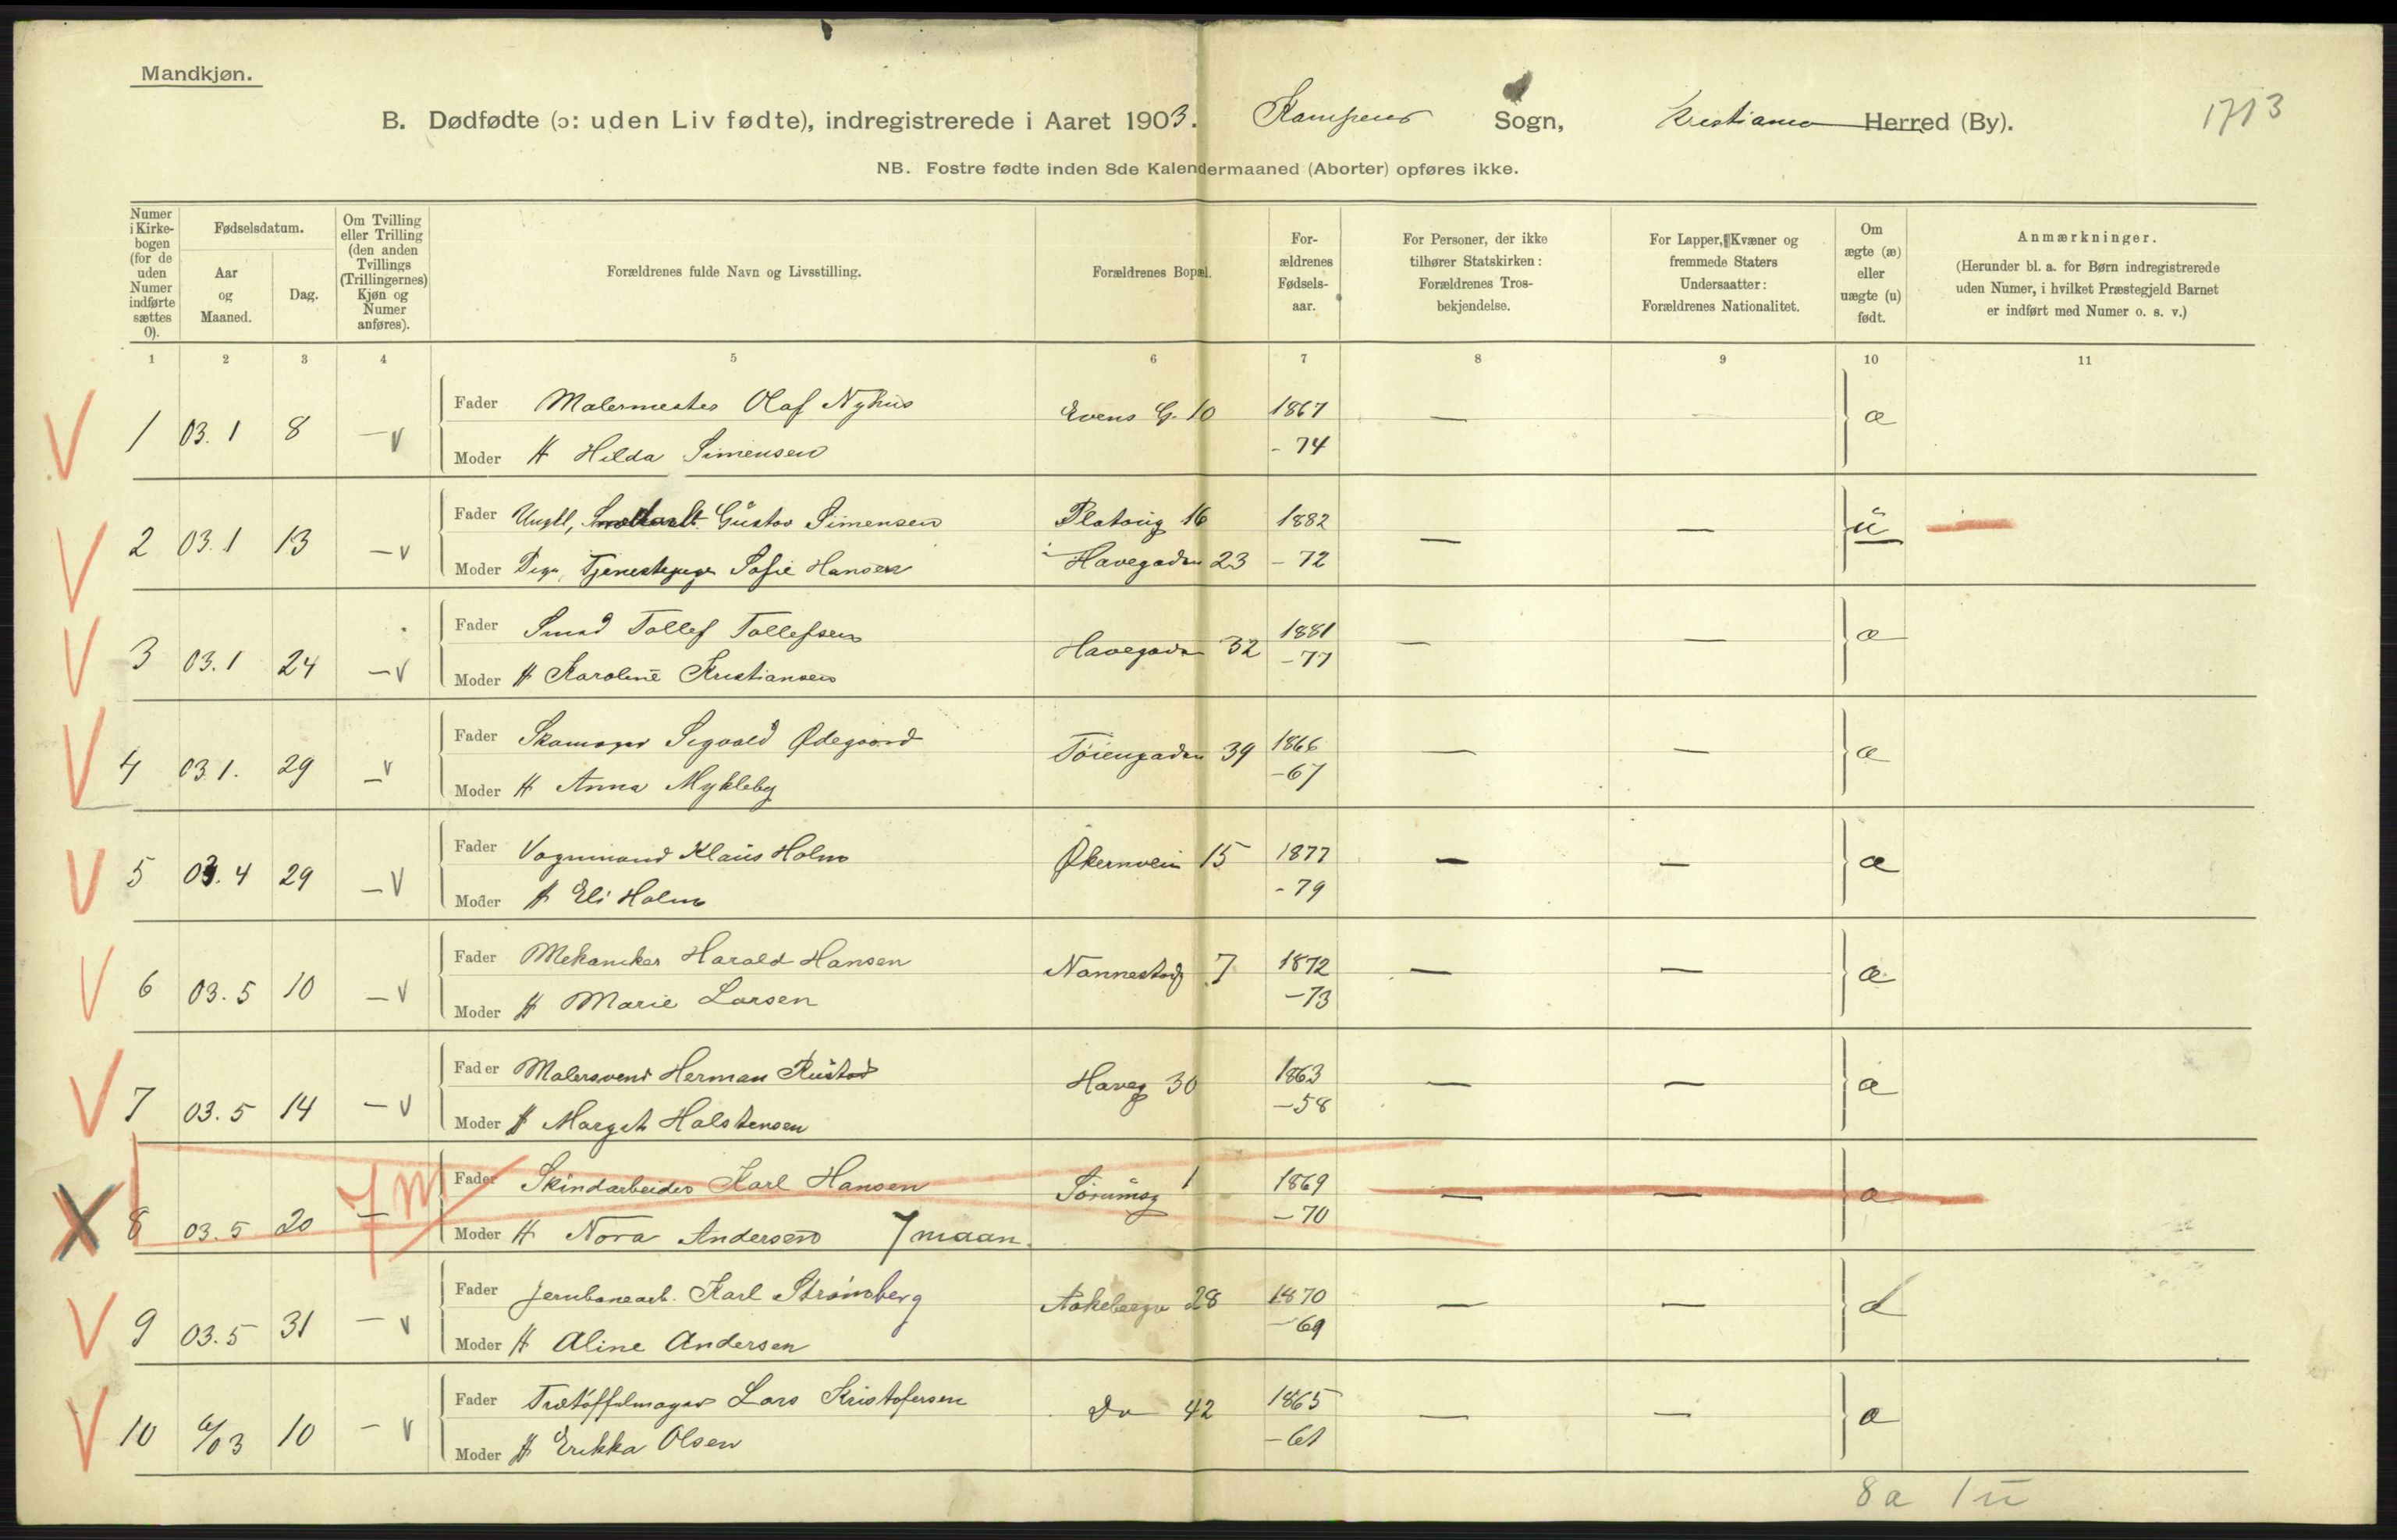 Mandkjøn.
B. Dødfødte (ɔ: uden Liv fødte), indregistrerede i Aaret 1903. Kampens Sogn, Kristiania Herred (By).
1713
NB. Fostre fødte inden 8de Kalendermaaned (Aborter) opføres ikke.
Numer i Kirkebogen (for de uden Numer indførte sættes 0).
Fødselsdatum.
Aar og Maaned.
Dag.
Om Tvilling eller Trilling (den anden Tvillings (Trillingernes) Kjøn og Numer anføres).
Forældrenes fulde Navn og Livsstilling.
Forældrenes Bopæl.
Forældrenes Fødselsaar.
For Personer, der ikke tilhører Statskirken: Forældrenes Trosbekjendelse.
For Lapper, Kvæner og fremmede Staters Undersaatter: Forældrenes Nationalitet.
Om ægte (æ) eller uægte (u) født.
Anmærkninger.
(Herunder bl. a. for Børn indregistrerede uden Numer, i hvilket Præstegjeld Barnet er indført med Numer o. s. v.)
1 2 3 4 5 6 7 8 9 10 11
1 03.1 8 — v Fader Malermester Olaf Nyhus Evens G. 10 1867 — — æ
Moder H Hilda Simensen - 74
2 03.1 13 — v Fader Ungkl, Gustav Simensen Platoug 16 1882 — — u
Moder Pige, Tjenestepige Sofie Hansen Havegaden 23 - 72
3 03.1 24 — v Fader Smed Tollef Tollefsen Havegaden 32 1881 — — æ
Moder H Karoline Kristiansen - 77
4 03.1. 29 — v Fader Skomager Sigvald Ødegaard Tøiengaden 39 1866 — — æ
Moder H Anna Mykleby - 67
5 03.4 29 — v Fader Vognmand Klaus Holm Økernvein 15 1877 — — æ
Moder H Eli Holm - 79
6 03.5 10 — v Fader Mekaniker Harald Hansen Nannestadg 7 1872 — — æ
Moder H Marie Larsen - 73
7 03.5 14 — v Fader Malersvend Herman Rustad Haveg 30 1863 — — æ
Moder H Margit Halstensen - 58
X 8 03.5 20 — 7 M Fader Skindarbeider Karl Hansen Sørumsg 1 1869 — — æ
Moder H Nora Andersen 7 maan. - 70
9 03.5 31 — v Fader Jernbanearb. Karl Strømberg Aakebergv 28 1870 — — æ
Moder H Aline Andersen - 69
10 6/03 10 — v Fader Trætøffelmager Lars Kristofersen Do 42 1865 — — æ
Moder H Erikka Olsen - 61
8 æ 1 u